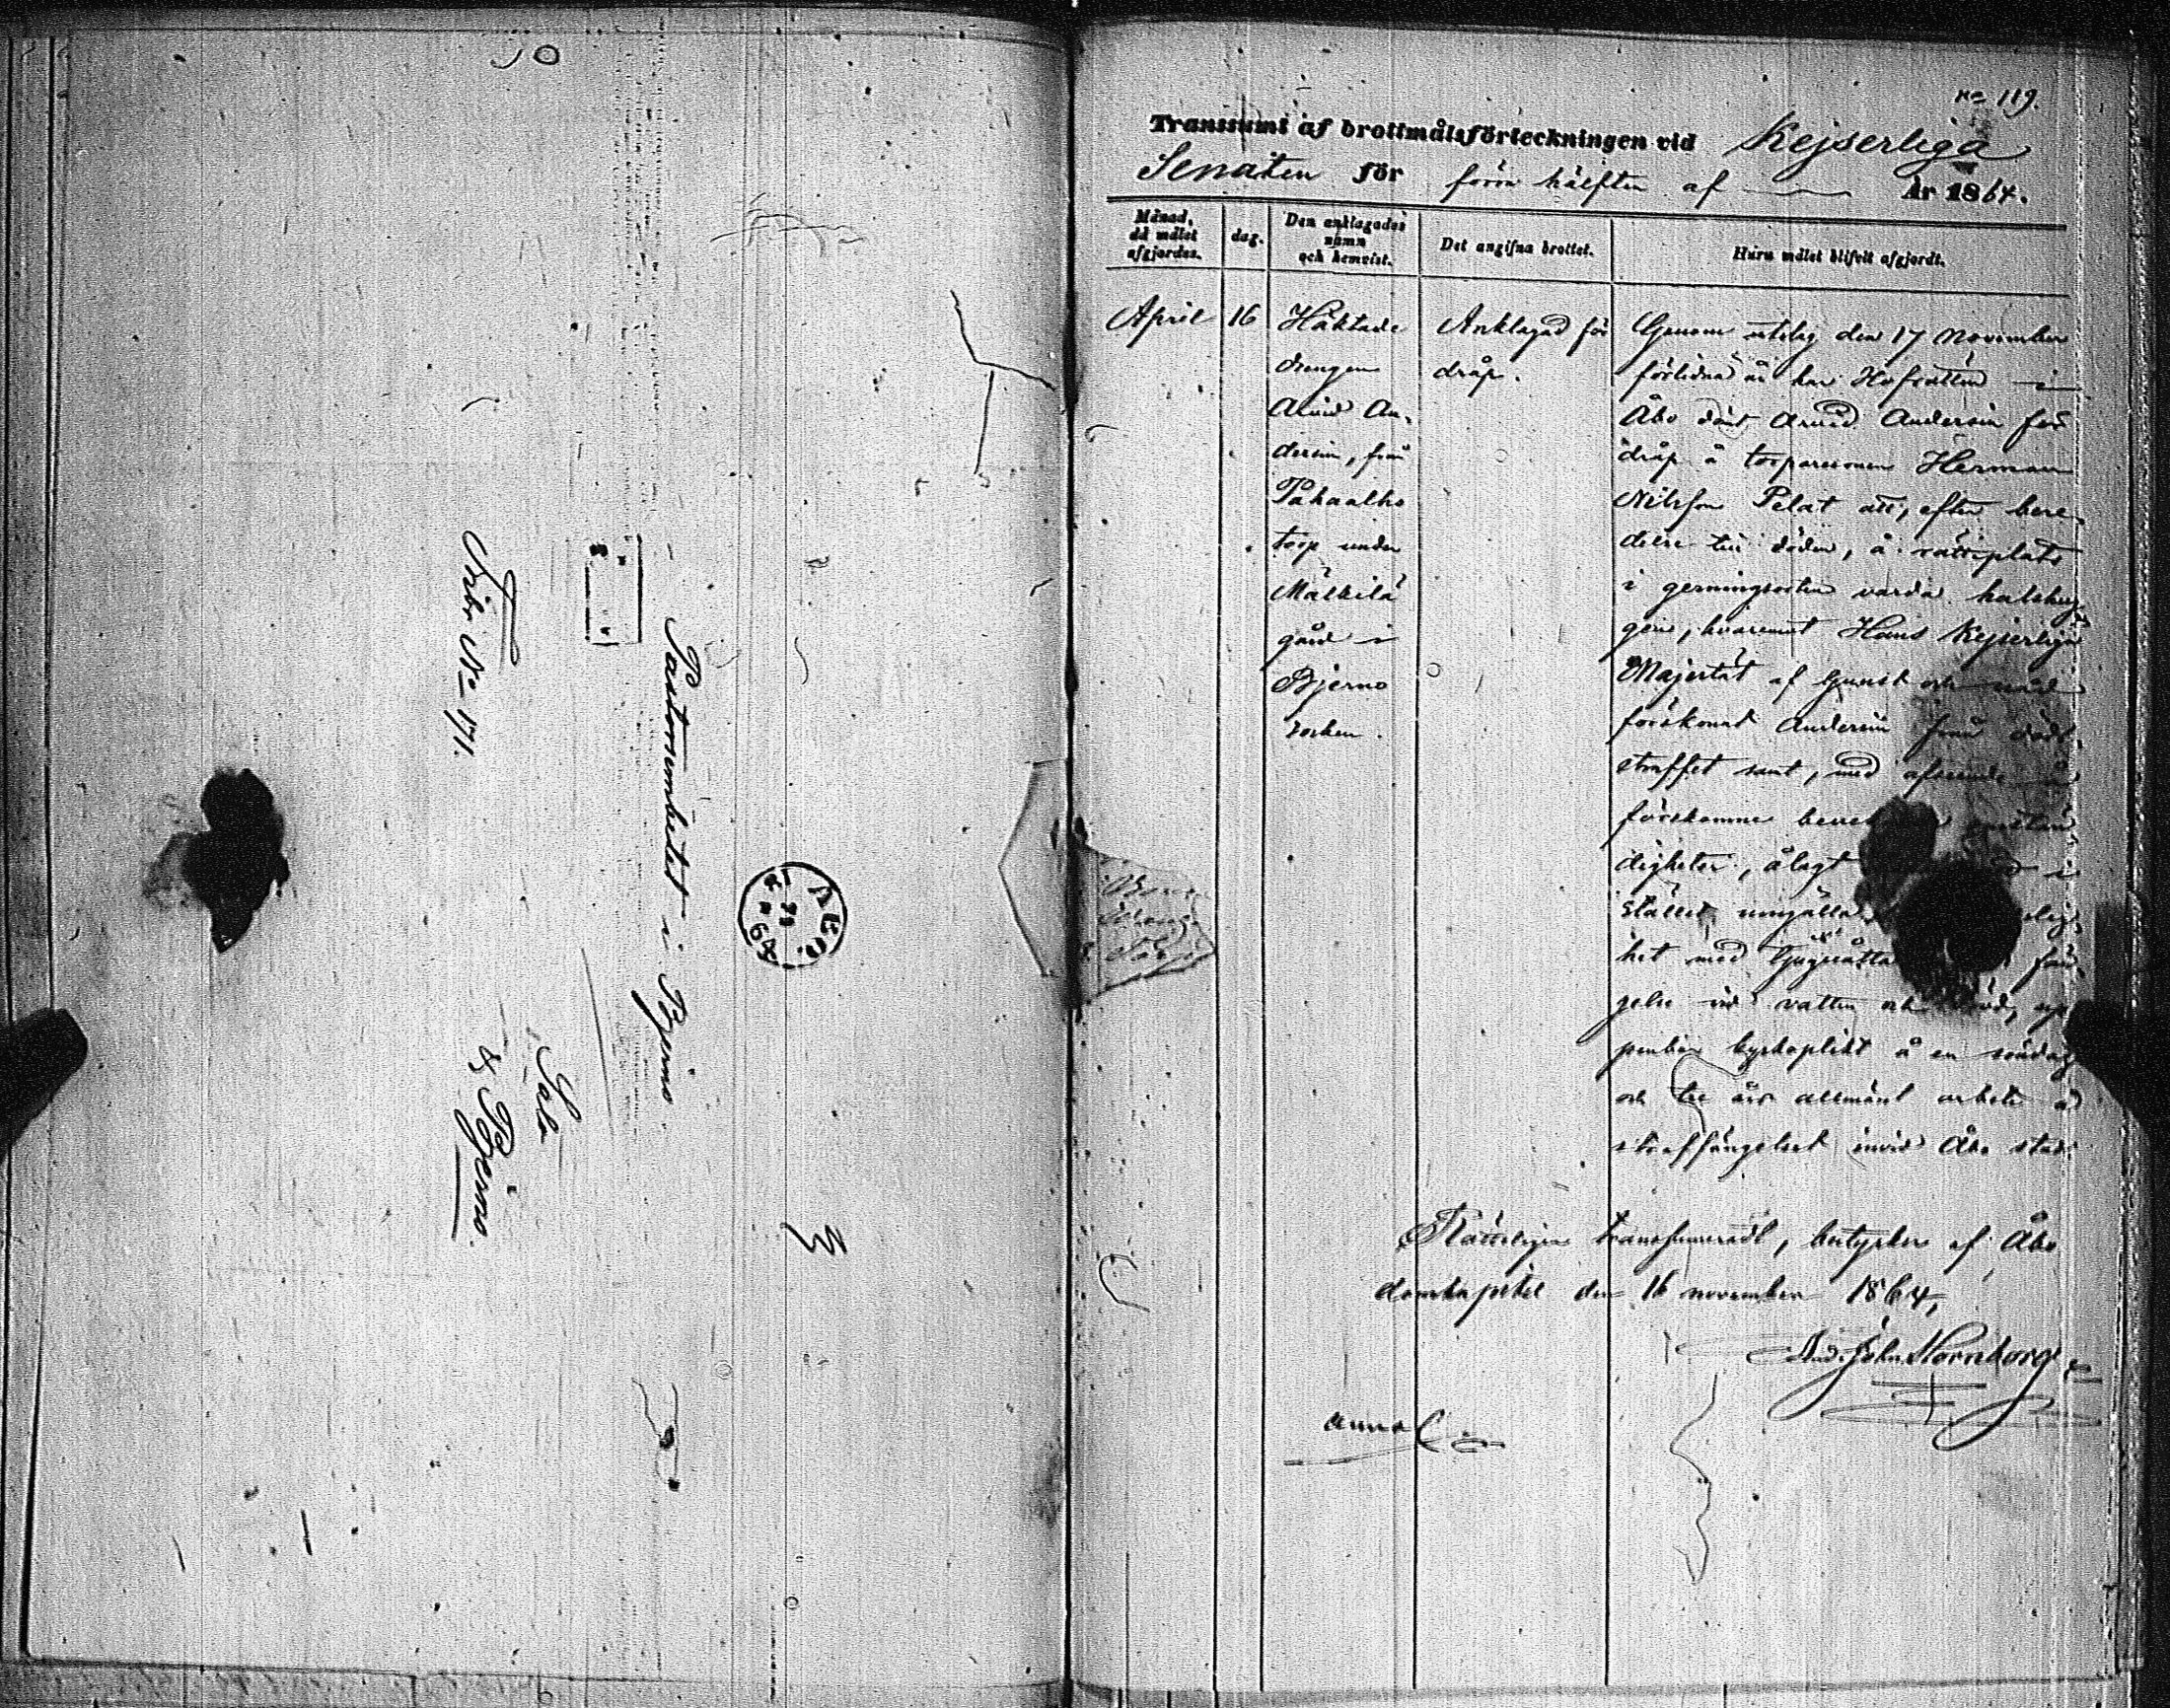 Pastorsembetet i Bjerno
Salo
& Bjerno.
Tribr No 171.
ÅBO.
64
No 119.
Transsumt af brottmålsförteckningen vid Kejserliga
Senaten för förra hälften af År 1864.
Månad, då målet afgjordes.
dag.
Den anklagades namn och hemvist.
Det angifna brottet.
Huru målet blifvit afgjordt.
April
16
Häktade
drengen
Arvid An-
dersin, från
torp under
Mälkilä
gård i
Bjerno
socken.
Anklagad för
dråp.
Genom utslag den 17 November
förlidna år har Hofrätten i
Åbo dömt Arvid Andersin för
dråp å torparesonen Herman
Nilsson Pelat att, efter bere-
delse till döden, å rättsplats
i gerningsorten varda halshug-
gen, hvaremot Hans Kejserliga
Majestät af Gunst och nåd
förskonat Andersin från döds-
straffet samt, med afseende å
förekomne omstän-
digheter, ålagt i
stället umgälla
het med tjuguåtta fän-
gelse vid vatten och bröd, up-
penbar kyrkoplikt å en söndag
och tre års allmänt arbete å
straffängelset invid Åbo stad.
Rätteligen transsumeradt, betyder af Åbo
domkapitel den 16 november 1864,
And. John Hornborg